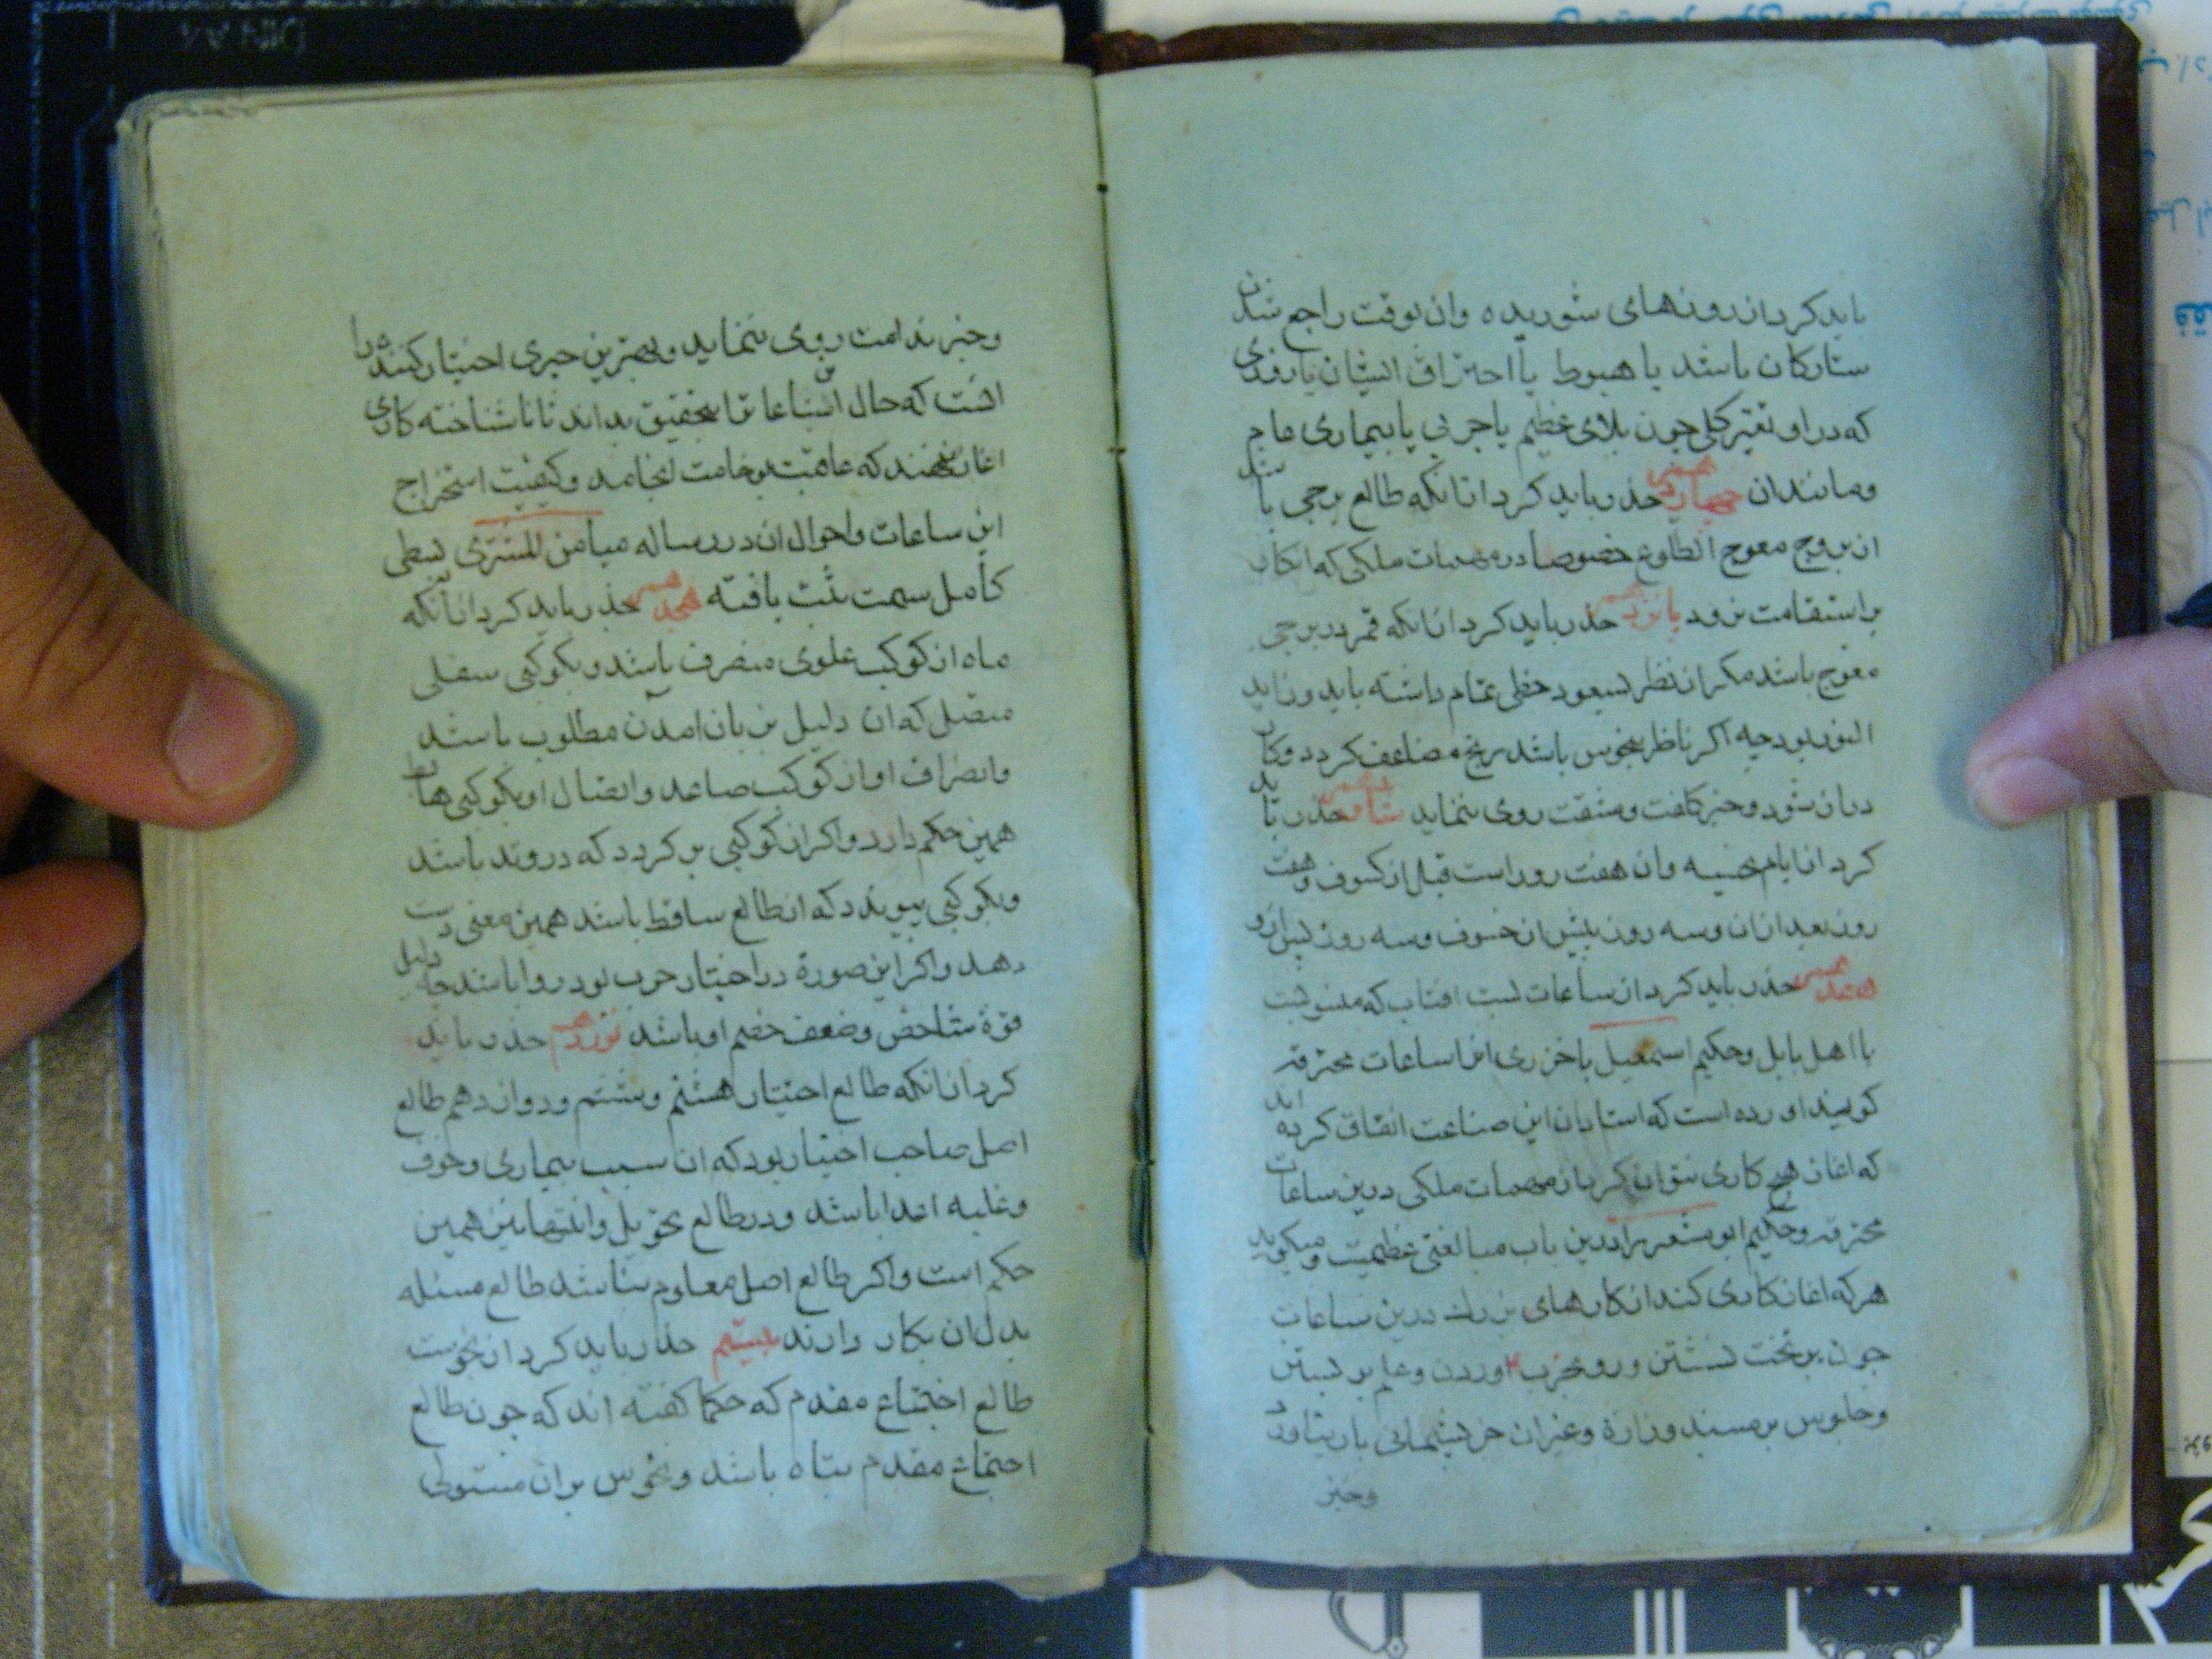 باید کرد از روزهای شوریده وان بوقت راجع شدن
ستارکان باشد یا هبوط یا احتراق ایشان یا روزی
که در او تغیر کلی چون بلای عظیم یا حربی یا بیماری عام
ومانند ان چهاردهم حذر باید کرد از انکه طالع برجی باشد
از بروج معوج الطلوع خصوصا در مهمات ملکی که انکار
براستقامت نرود پانزدهم حذر باید کرد از انکه قمر در برجی
معوج باشد مکر از نظر سعود حظی تمام داشته باید وزاید
النور بود چه اکر ناظر بنحوس باشد رنج مضاعف کردد وکار
دران شود وجز کلفت ومشقت روی ننماید شانزدهم حذر باید
کرد از ایام نحسیه وان هفت روز است قبل از کسوف وهفت
روز بعد ازان وسه روز پیش از خسوف وسه روز پس ازو
هفدهم حذر باید کرد از ساعات بست افتاب که منسوبست
با اهل بابل وحکیم اسمعیل باخزری انرا ساعات محترقه
کویند اورده است که استادان این صناعت اتفاق کرده اند
که اغاز هیچ کاری نتوان کرد از مهمات ملکی درین ساعات
محترقه وحکیم ابومعشر را درین باب مبالغتی عظیمست ومیکوید
هرکه اغاز کاری کند از کارهای بزرک درین ساعات
چون بر تخت نشستن ورو بحرب اوردن وعلم بر بستن
وجلوس بر مسند وزارة وغیر ان جز پشیمانی بار نیاورد
وجز
وجز ندامت روی ننماید وبهترین چیزی اختیار کننده را
انست که حال این ساعات را بتحقیق بداند تا ناشناخته کاری
اغاز نکند که عاقبت بوخامت انجامد وکیفیت استخراج
این ساعات واحوال ان در رساله میامن المشتری بسطی
کامل سمت ثبت یافته هجدهم حذر باید کرد از انکه
ماه از کوکب علوی منصرف باشد وبکوکبی سفلی
متصل که ان دلیل بزیان امدن مطلوب باشد
وانصراف او از کوکب صاعد واتصال او بکوکبی هابط
همین حکم دارد واکر از کوکبی بر کردد که در وتد باشد
وبکوکبی پیوندد که از طالع ساقط باشد همین معنی دست
دهد واکر این صورة در اختیار حرب بود روا باشد چه دلیل
قوة شاخص وضعف خصم او باشد نوزدهم حذر باید
کرد از انکه طالع اختیار هشتم وششم ودوازدهم طالع
اصل صاحب اختیار بود که ان سبب بیماری وخوف
وغلبه اعدا باشد ودر طالع تحویل وانتها نیز همین
حکم است واکر طالع اصل معلوم نباشد طالع مسئله
بدل ان بکار دارند بیستم حذر باید کرد از نحوست
طالع اجتماع مقدم که حکما کفته اند که چون طالع
اجتماع مقدم تباه باشد ونحوس بران مستولی